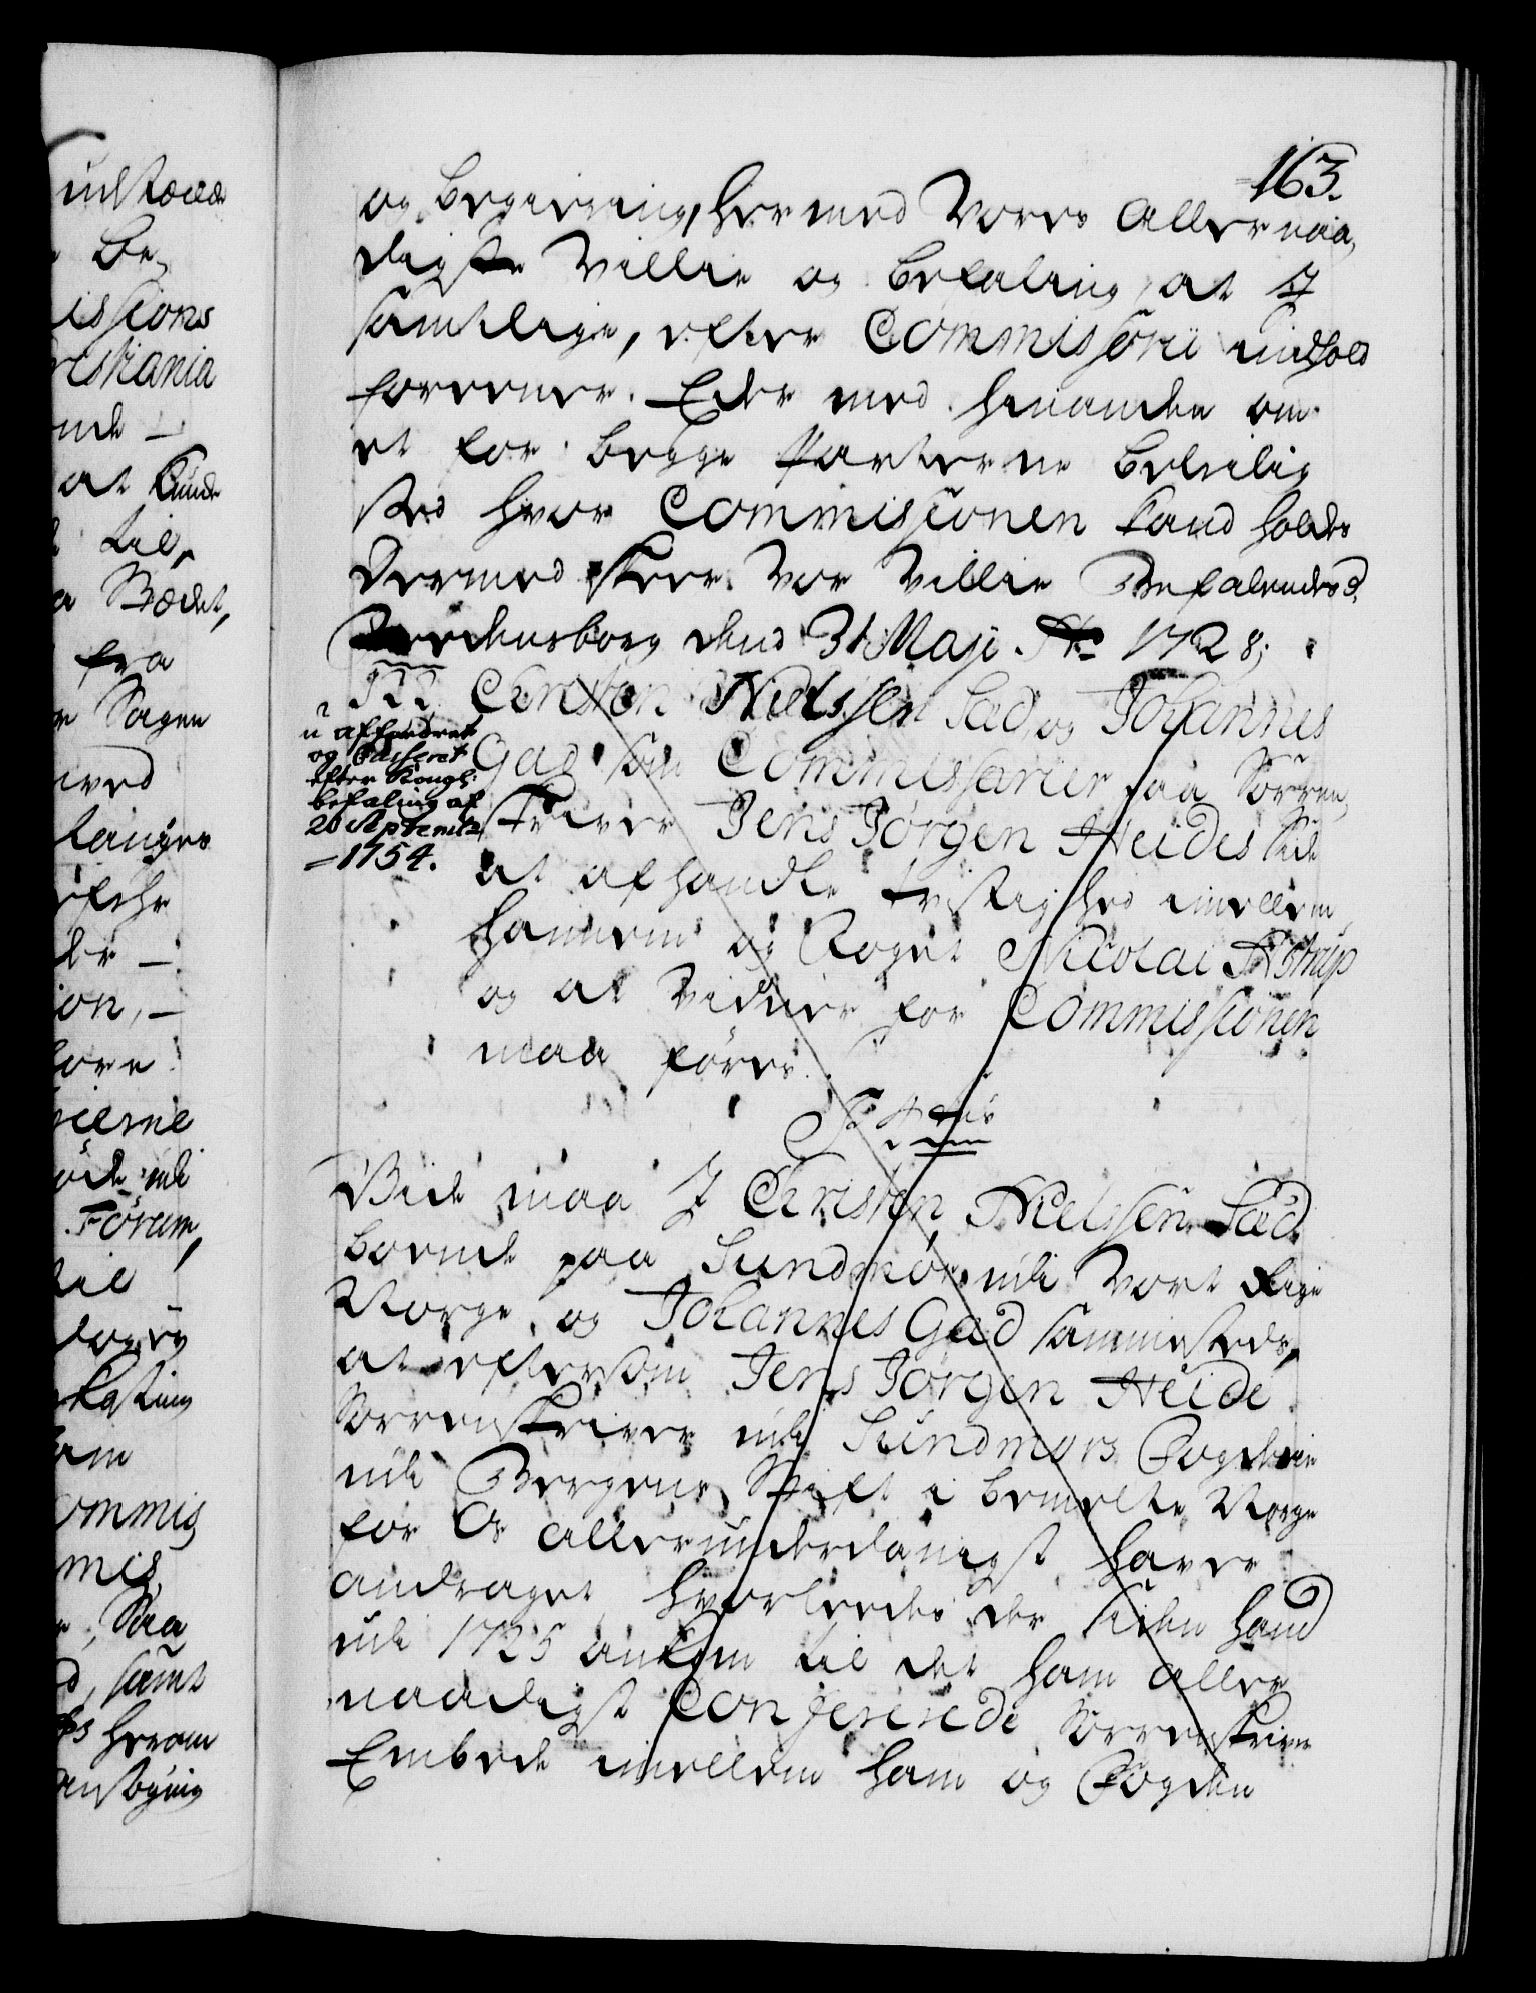 163.
og begiering, hermed Vores Allernaa,
digste Villie og befaling, at I
samtlige, efter Commissorii indhold
foreener Eder med hinanden om
et for begge Parterne beleilig
sted hvor Commissionen kand holdes
Dermed skeer Vor Villie Befalendes
Fredensborg dend 31 Maji Ao 1728;
Christen Nielssen Sæd, og Johannes
Gad som Commissarier paa Sorren,
skriver Jens Jørgen Heides Side
at afhandle tvistighed imellem
hannem og Foget Nicolai Astrup
og at Vidner for Commissionen
maa føres.
u affordret
og Casseret
efter Kongl:
befaling af
20 Septemb:
1754.
Vide maa I Christen Nielssen Sæd
boende paa Sundmør udi Vort Rige
Norge, og Johannes Gad sammesteds,
at eftersom Jens Jørgen Heide
Sorrenskriver udi Sundmørs Fogderie
udi Bergens Stift i bemelte Norge
for Os allerunderdanigst haver
andraget, hvorledes der siden hand
udi 1725 ankom til det ham aller
naadigst Confererede Sorrenskriver
Embede imellem ham og Fogden
udstædde
Be,
issions
ristiania
inde
at kunde
til,
Bædet,
fra
Sagen
med
langes
ion,
Forum,
til
ommis
mis,
Saa
samt
herom
ansøgning